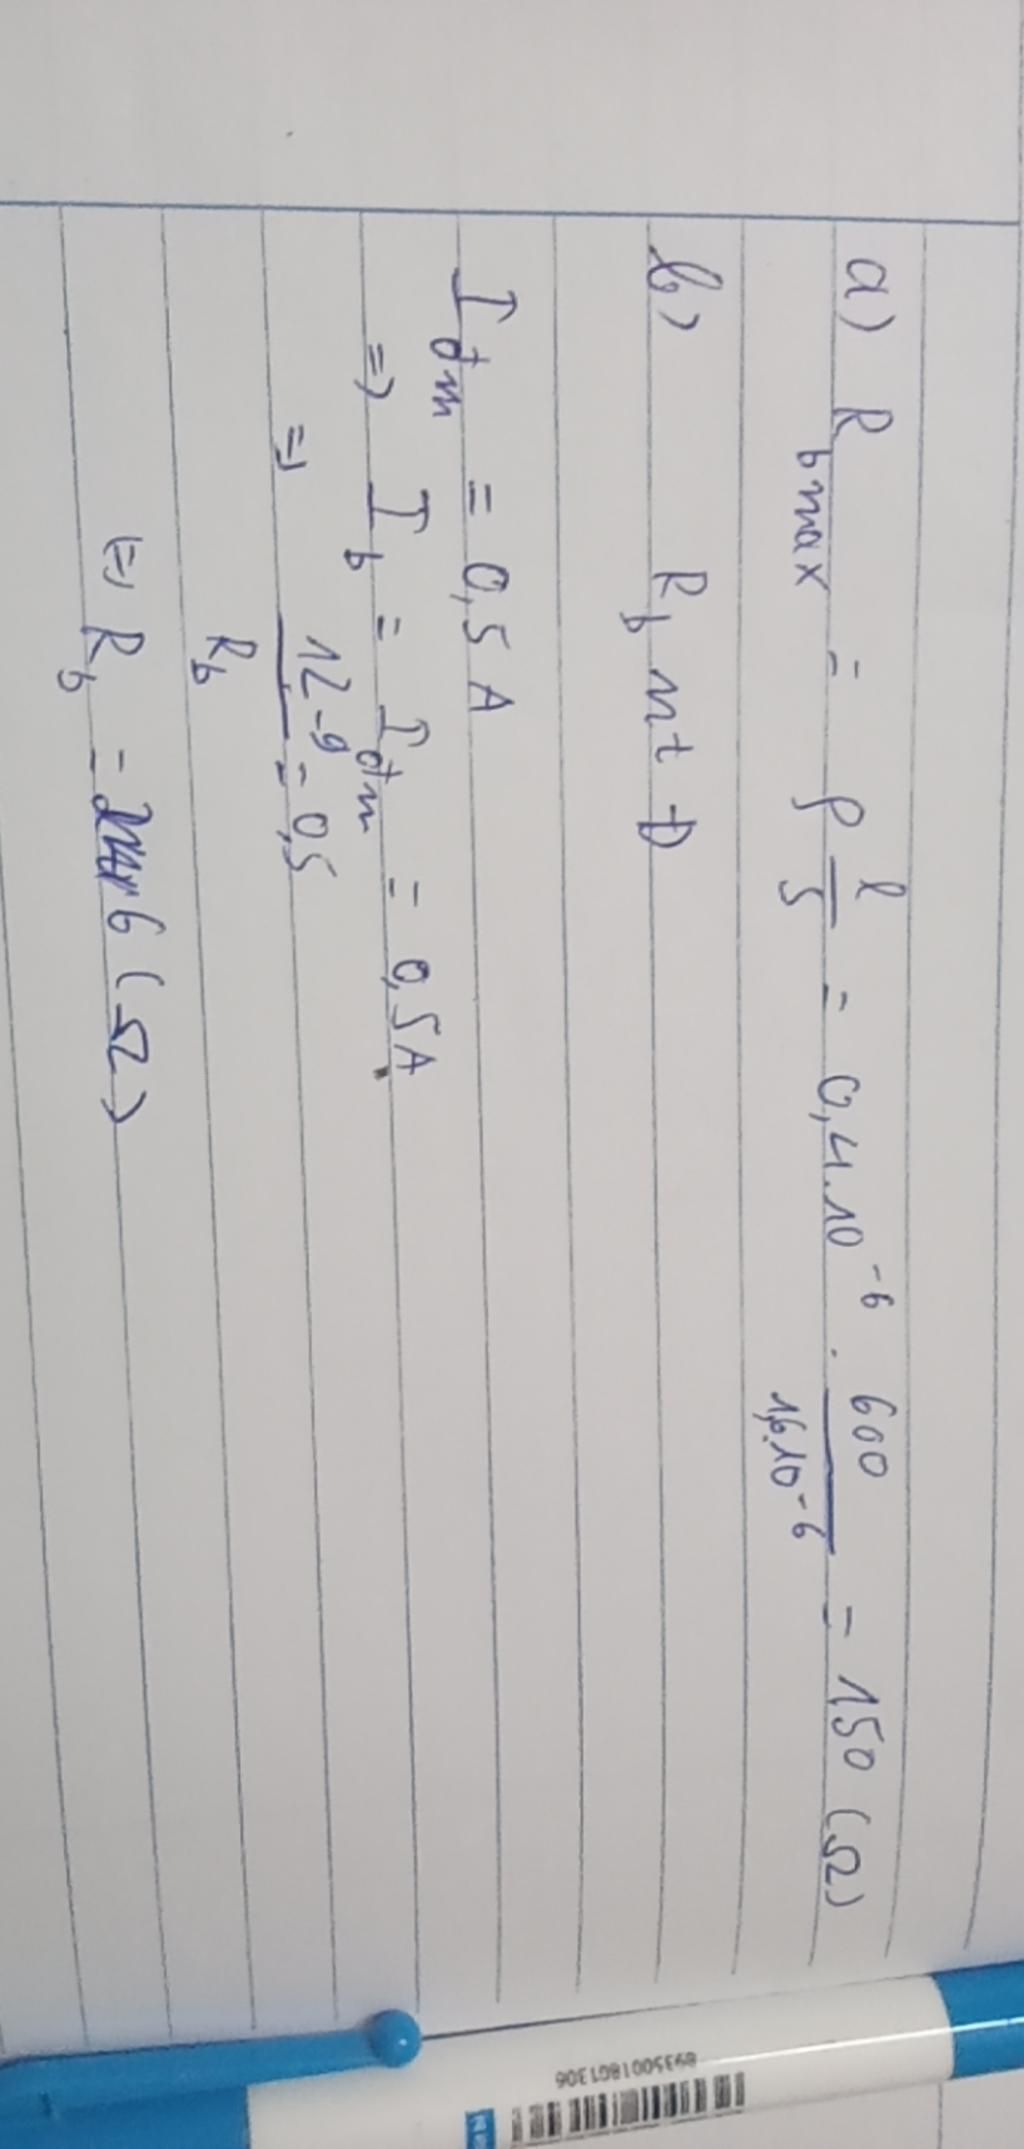 a) R bmax = ρ l/S = 0,4.10⁻⁶ . 600/1,6.10⁻⁶ = 150 (Ω)
b) R b nt Đ
I đm = 0,5 A
=> I b = I đm = 0,5A
=> 12-9/R b = 0,5
(=) R b = 6 (Ω)
8935001861306